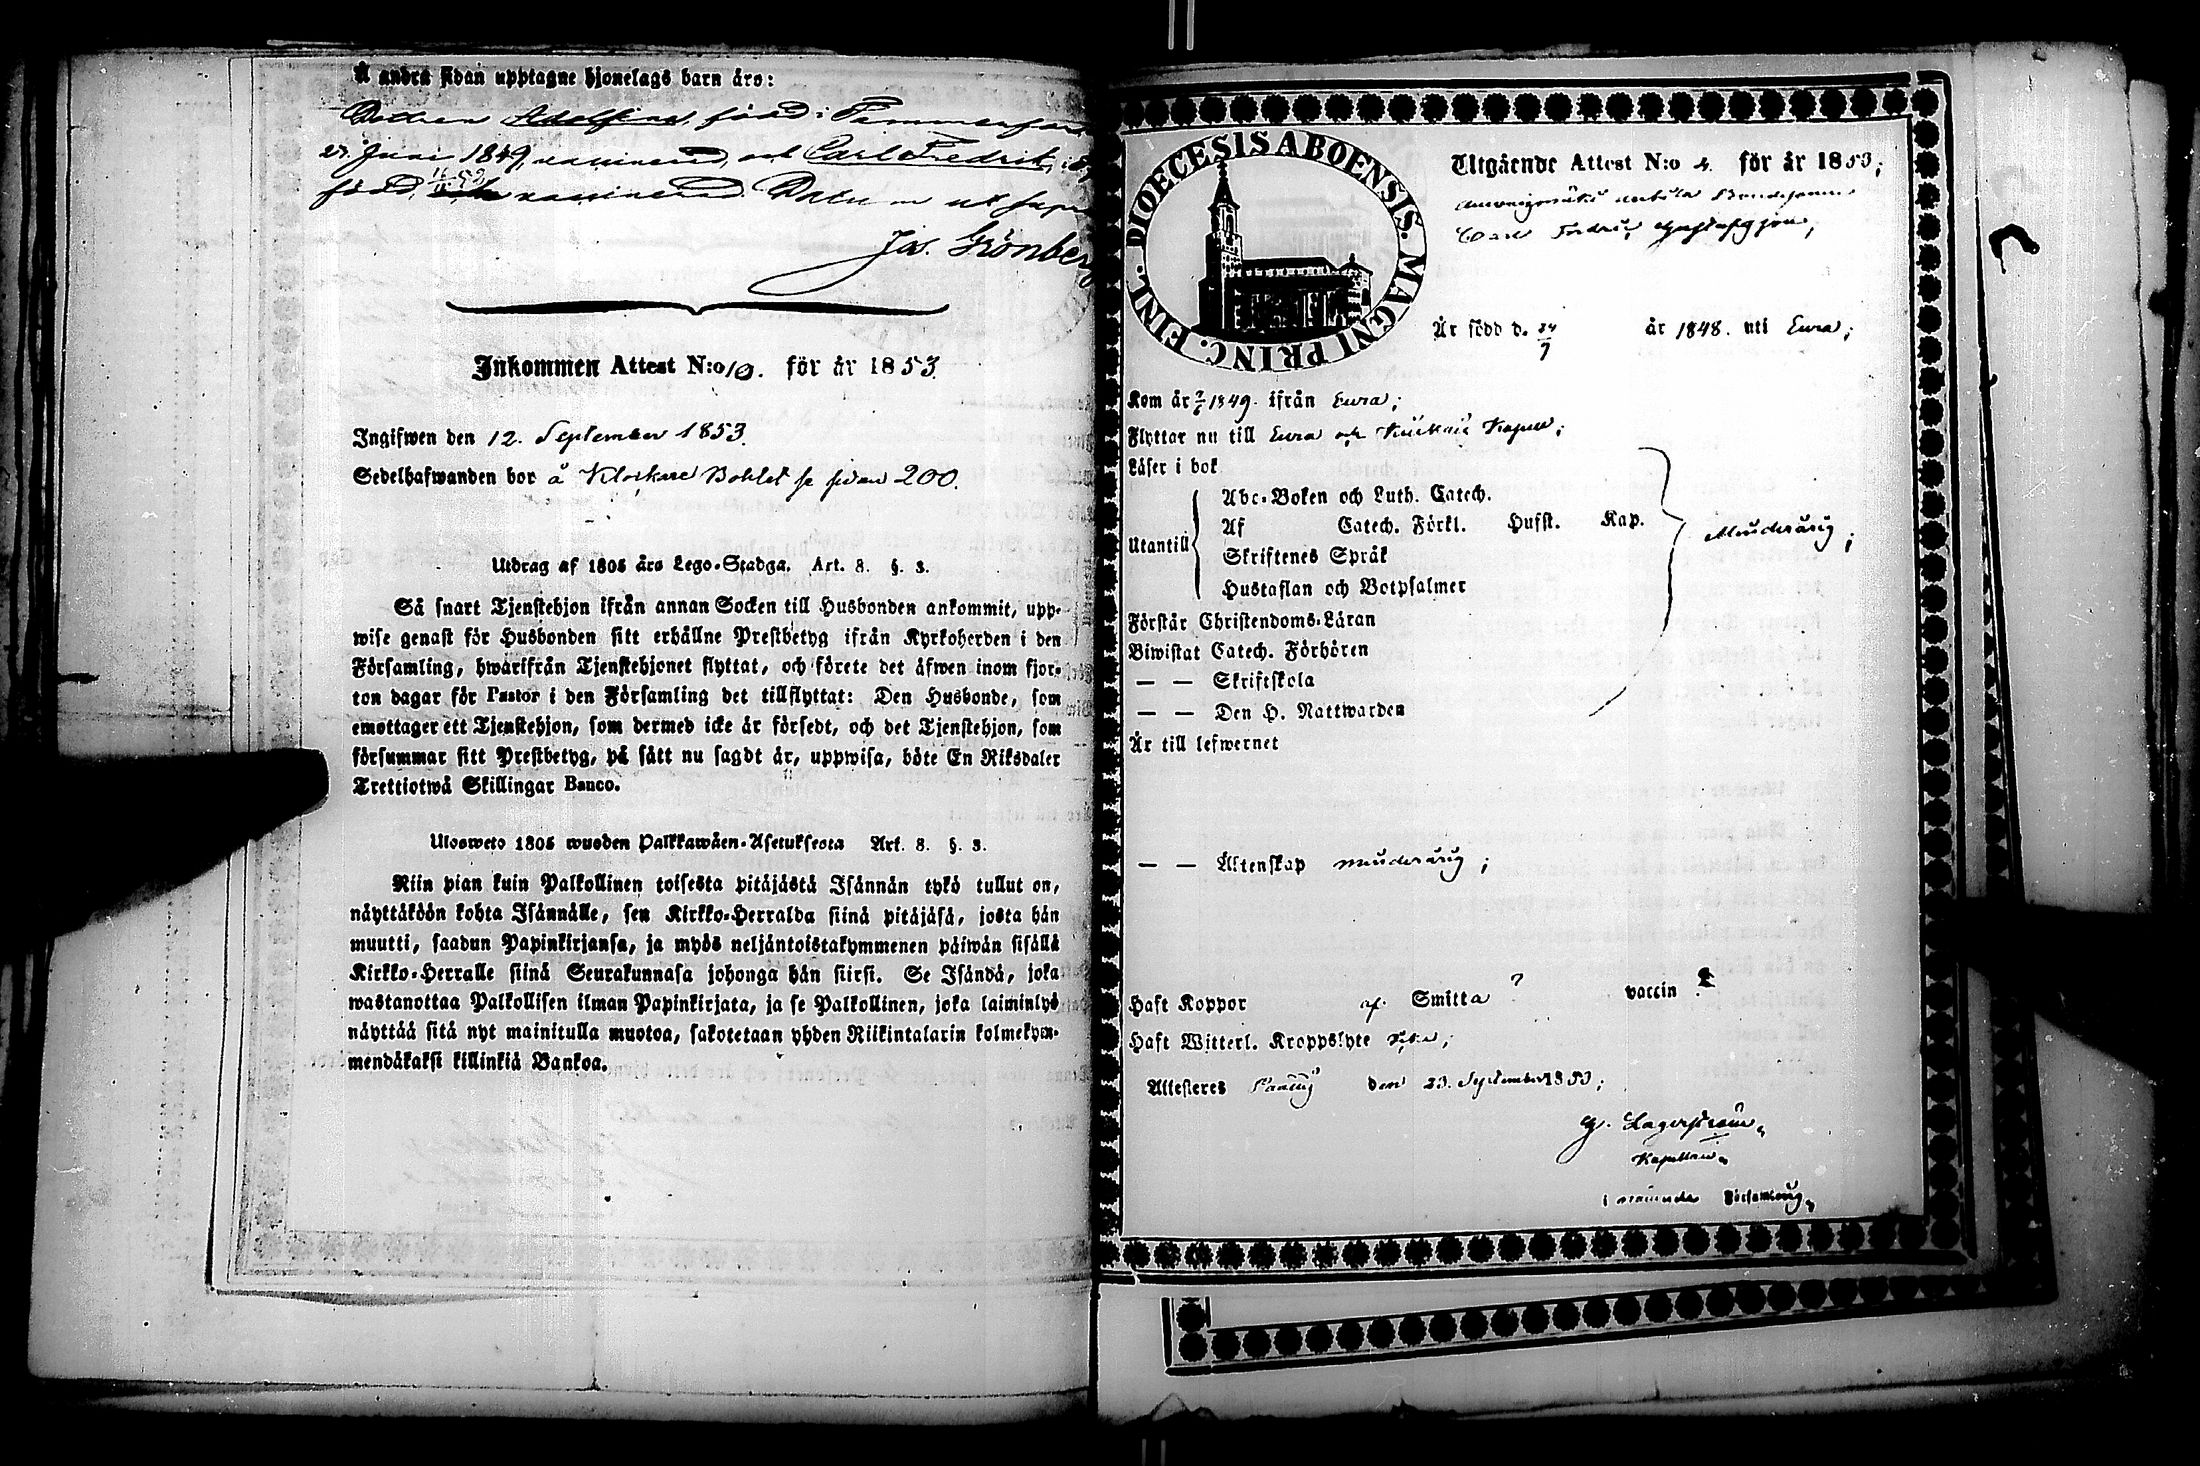 Å andra sidan upptagne hjonelags barn äro:
Dottren Adelfina, född i Tammerfors
27 Juni 1849, vaccinerad, och Carl Fredrik,
född 52 vaccinerad. Datum ut supra
Jos. Grönberg
Inkommen Attest N:o 10. för år 1853.
Ingifwen den 12. September 1853.
Sedelhafwanden bor å Klockare Bohlet se sidan 200.
Utdrag af 1805 års Lego-Stadga. Art. 8. §. 3.
Så snart Tjenstehjon ifrån annan Socken till Husbonden ankommit, upp-
wise genast för Husbonden sitt erhållne Prestbetyg ifrån Kyrkoherden i den
Församling, hwarifrån Tjenstehjonet flyttat, och förete det äfwen inom fjor-
ton dagar för Pastor i den Församling det tillflyttat: Den Husbonde, som
emottager ett Tjenstehjon, som dermed icke är försedt, och det Tjenstehjon, som
försummar sitt Prestbetyg, på sätt nu sagdt är, uppwisa, böte En Riksdaler
Trettiotwå Skillingar Banco.
Ulosweto 1805 wuoden Palkkawäen-Asetuksesta Art. 8. §. 3.
Niin pian kuin Palkollinen toisesta pitäjästä Isännän tykö tullut on,
näyttäköön kohta Isännälle, sen Kirkko-Herralda siinä pitäjäsä, josta hän
muutti, saadun Papinkirjansa, ja myös neljäntoistakymmenen päiwän sisällä
Kirkko-Herralle siinä Seurakunnasa johonga hän siirsi. Se Isändä, joka
wastanottaa Palkollisen ilman Papinkirjata, ja se Palkollinen, joka laiminlyö
näyttää sitä nyt mainitulla muotoa, sakotetaan yhden Riikintalarin kolmekym-
mendäkaksi killinkiä Bankoa.
DIOECESIS ABOENSIS. MAGNI PRINC. FINL.
Utgående Attest N:o 4. för år 1853;
Bondesonen
Carl Fredric Gustafsson,
Är född d. 24/7 år 1848. uti Eura;
Kom år 2/6 1849. ifrån Eura;
Flyttar nu till Eura och Kiukais Kapell;
Läser i bok
Utantill
Abc-Boken och Luth. Catech.
Af Catech. Förkl. Husst. Kap.
Skriftenes Språk
Hustaflan och Botpsalmer
Minderårig;
Förstår Christendoms-Läran
Biwistat Catech. Förhören
— — Skriftskola
— — Den H. Nattwarden
Är till lefwernet
— — Äktenskap minderårig;
Haft Koppor af Smitta ? vaccin ?
Haft Witterl. Kroppslyte Icke;
Attesteres den 23. September 1853;
G. Lagerström.
Kapellan
i nämnde Församling.